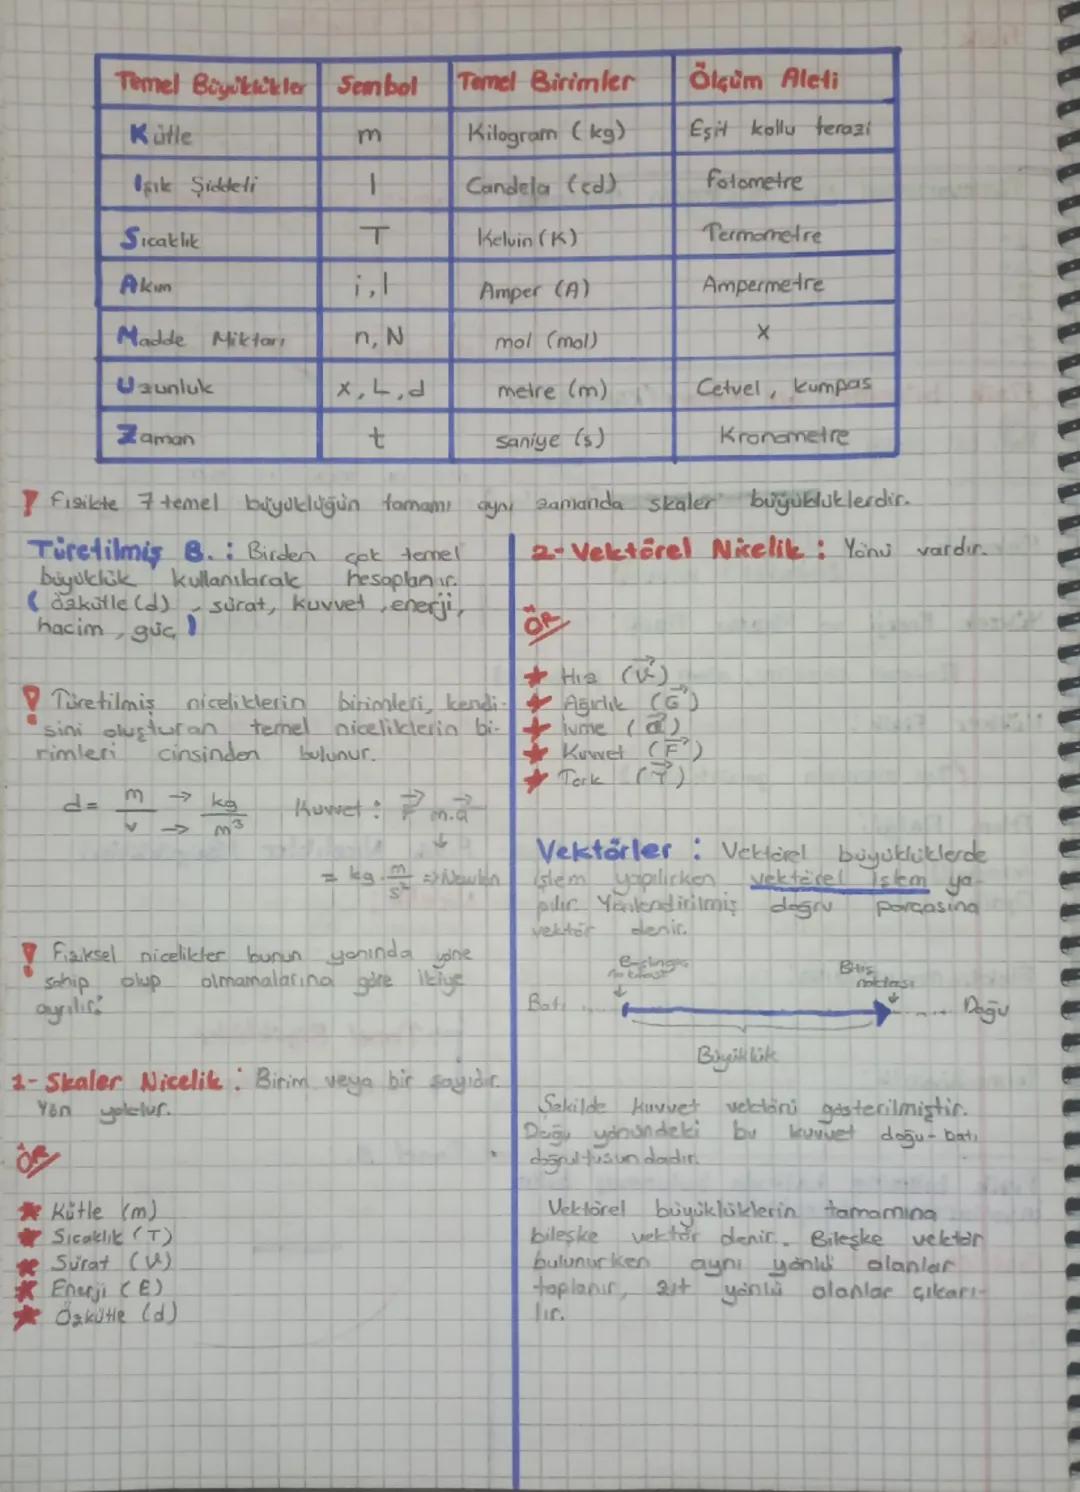 Temel Büyüklükler Sembol Temel Birimler Ölçüm Aleti
Kütle m Kilogram (kg) Eşit kollu terazi
Işık Şiddeti I Candela (cd) Fotometre
Sıcaklık T Kelvin (K) Termometre
Akım i, I Amper (A) Ampermetre
Madde Miktarı n, N mol (mol) X
Uzunluk x, L, d metre (m) Cetvel, kumpas
Zaman t saniye (s) Kronometre
! Fizikte 7 temel büyüklüğün tamamı aynı zamanda skaler büyüklüklerdir.
Türetilmiş B. : Birden çok temel
büyüklük kullanılarak hesaplanır.
(özkütle (d), sürat, kuvvet, enerji,
hacim, güç)
! Türetilmiş niceliklerin birimleri, kendi-
sini oluşturan temel niceliklerin bi-
rimleri cinsinden bulunur.
d = m/v → kg / → m³ Kuvvet : F⃗ m.a⃗
↓
= kg . m/s² => Newton
! Fiziksel nicelikler bunun yanında yöne
sahip olup olmamalarına göre ikiye
ayrılır:
1- Skaler Nicelik : Birim veya bir sayıdır.
Yön yoktur.
ÖR
★ Kütle (m)
★ Sıcaklık (T)
★ Sürat (V)
★ Enerji (E)
★ Özkütle (d)
2- Vektörel Nicelik : Yönü vardır.
ÖR
★ Hız (V⃗)
★ Ağırlık (G⃗)
★ İvme (a⃗)
★ Kuvvet (F⃗)
★ Tork (T⃗)
Vektörler : Vektörel büyüklüklerde
işlem yapılırken vektörel işlem ya-
pılır. Yönlendirilmiş doğru parçasına
vektör denir.
Başlangıç noktası Bitiş noktası
Batı Doğu
Büyüklük
Şekilde kuvvet vektörü gösterilmiştir.
Doğu yönündeki bu kuvvet doğu-batı
doğrultusundadır.
Vektörel büyüklüklerin tamamına
bileşke vektör denir. Bileşke vektör
bulunurken aynı yönlü olanlar
toplanır, zıt yönlü olanlar çıkarı-
lır.